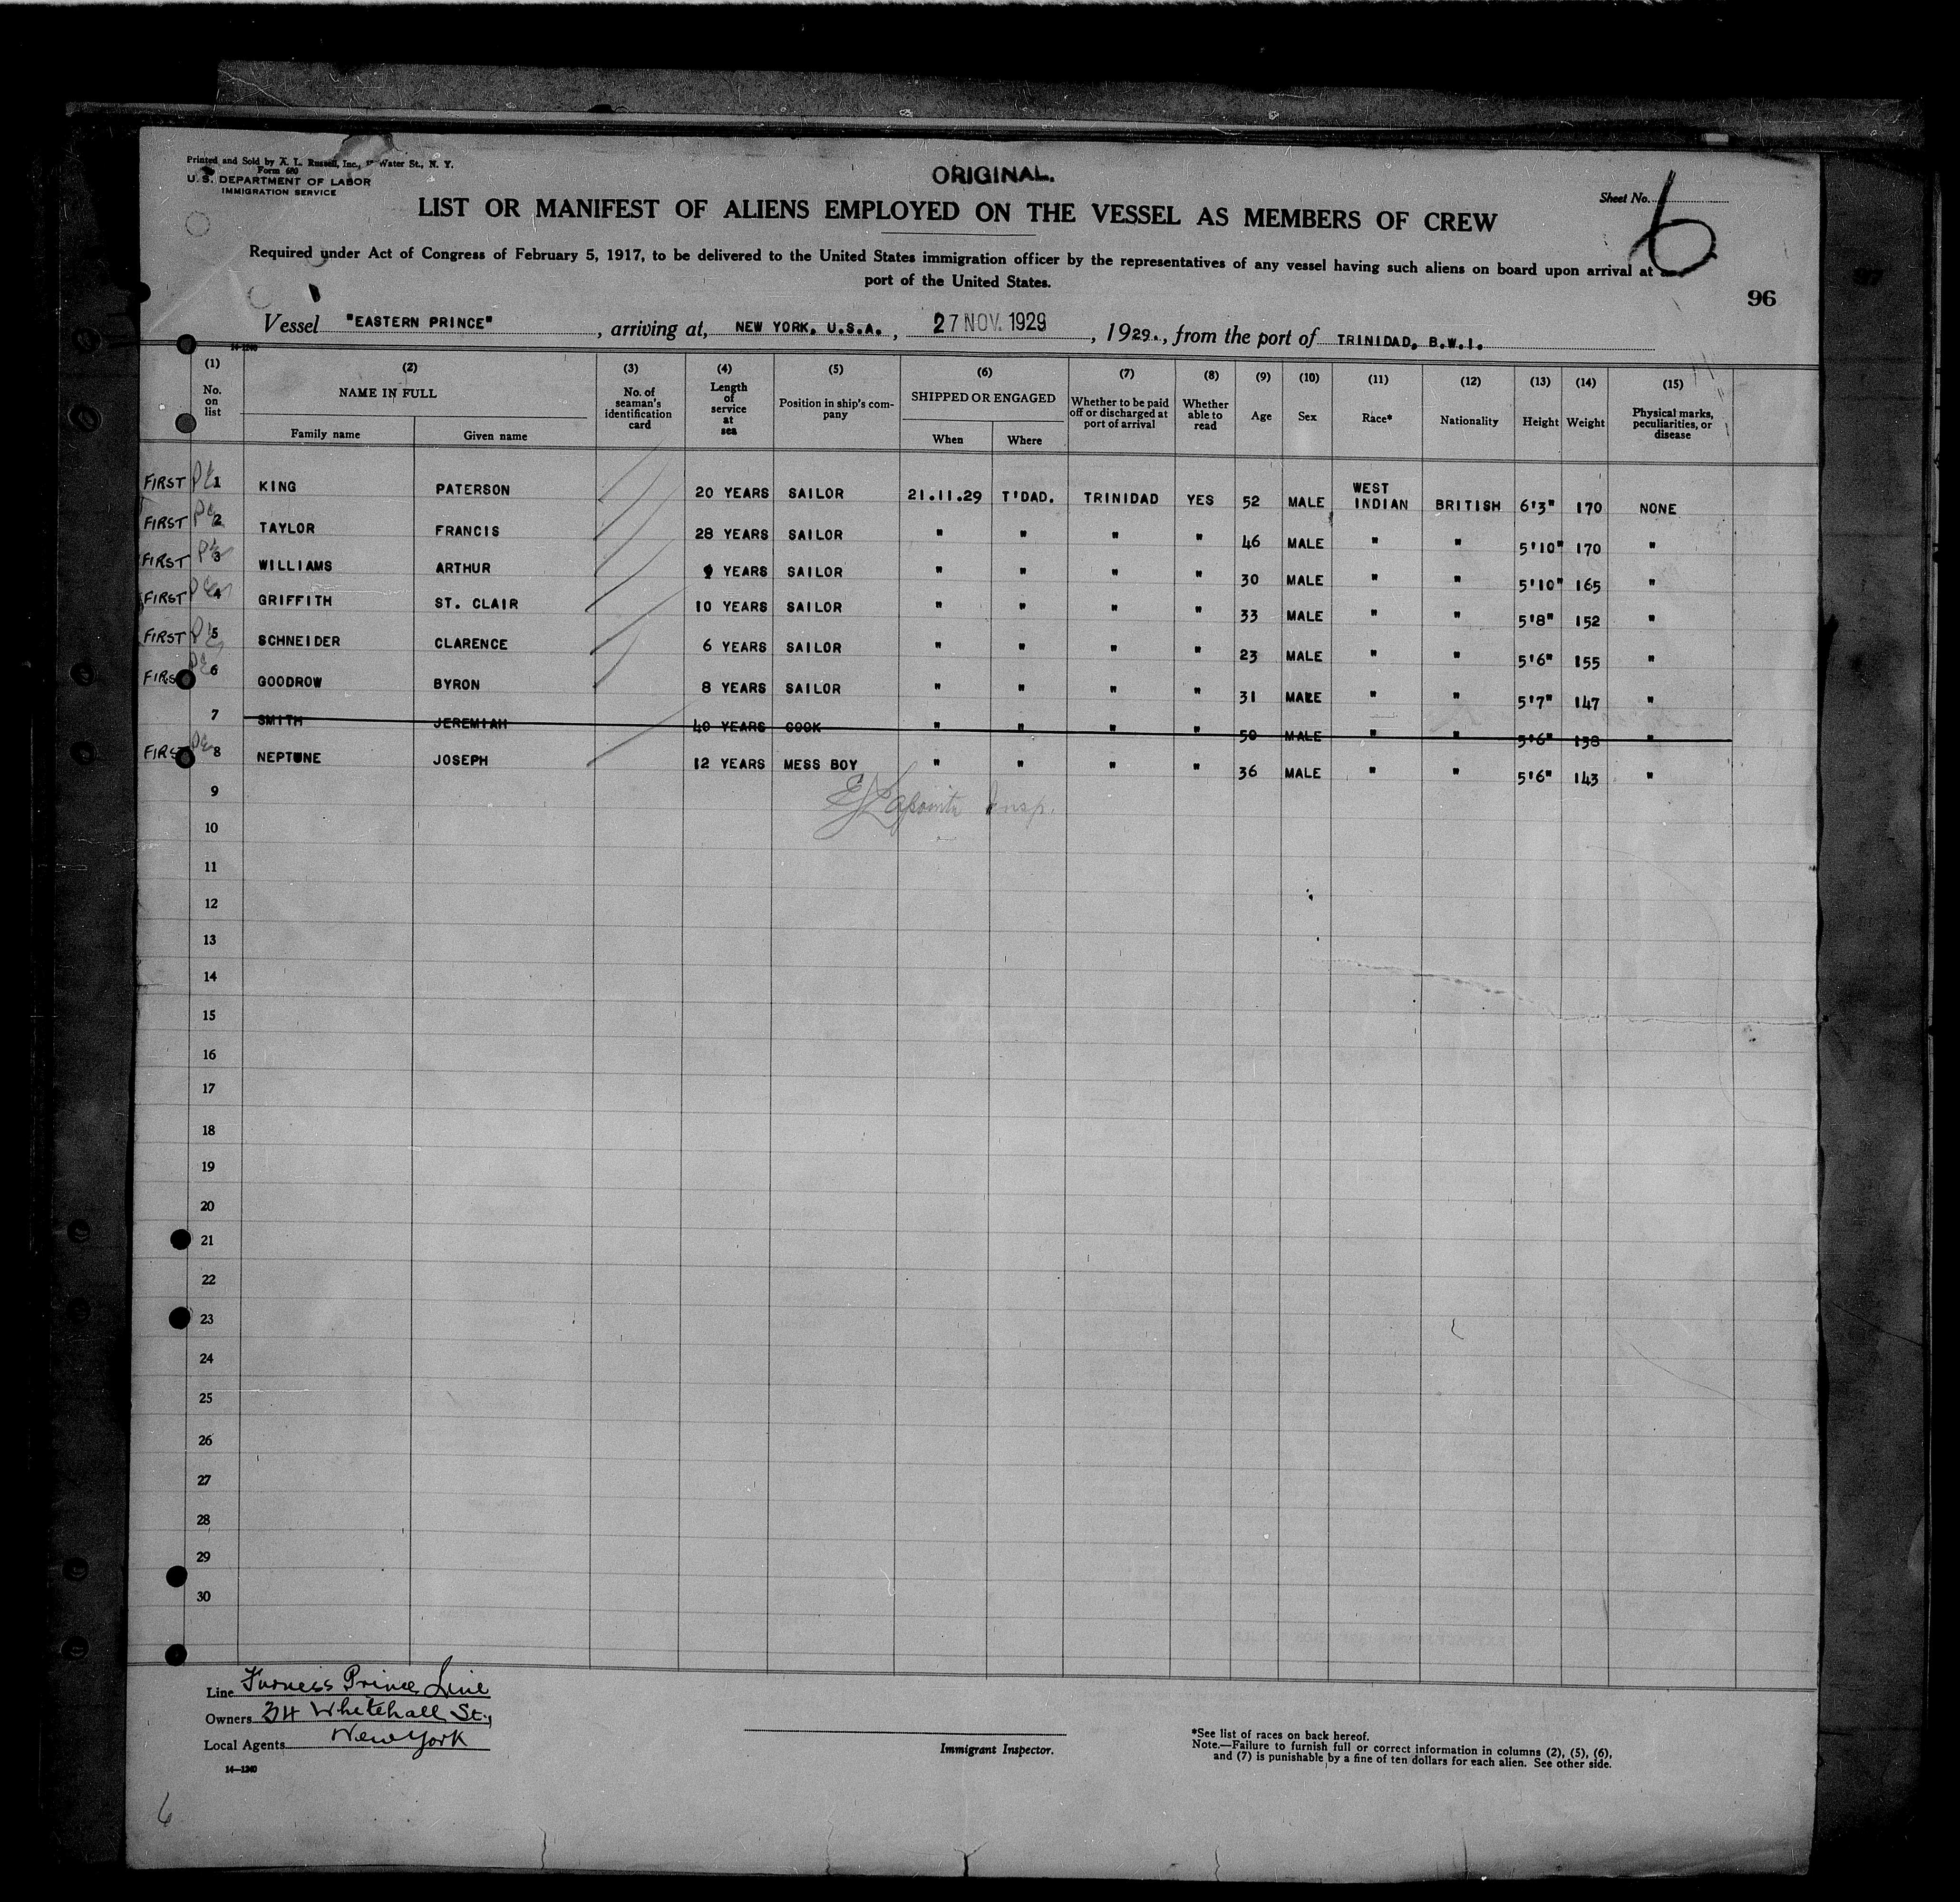 Printed and Sold by A. L. Russell, Inc., Water St., N. Y.
Form 680
U. S. DEPARTMENT OF LABOR
IMMIGRATION SERVICE
ORIGINAL.
Sheet No. 6
LIST OR MANIFEST OF ALIENS EMPLOYED ON THE VESSEL AS MEMBERS OF CREW
Required under Act of Congress of February 5, 1917, to be delivered to the United States immigration officer by the representatives of any vessel having such aliens on board upon arrival at
port of the United States.
96
Vessel "EASTERN PRINCE", arriving at, NEW YORK. U.S.A., 27 NOV. 1929, 1929., from the port of TRINIDAD, B.W.I.
14-1240
(1) (2) (3) (4) (5) (6) (7) (8) (9) (10) (11) (12) (13) (14) (15)
No. on list NAME IN FULL Family name Given name No. of seaman's identification card Length of service at sea Position in ship's company SHIPPED OR ENGAGED When Where Whether to be paid off or discharged at port of arrival Whether able to read Age Sex Race* Nationality Height Weight Physical marks, peculiarities, or disease
FIRST 1 KING PATERSON 20 YEARS SAILOR 21.11.29 T'DAD. TRINIDAD YES 52 MALE WEST INDIAN BRITISH 6'3" 170 NONE
FIRST 2 TAYLOR FRANCIS 28 YEARS SAILOR " " " " 46 MALE " " 5'10" 170 "
FIRST 3 WILLIAMS ARTHUR YEARS SAILOR " " " " 30 MALE " " 5'10" 165 "
FIRST 4 GRIFFITH ST. CLAIR 10 YEARS SAILOR " " " " 33 MALE " " 5'8" 152 "
FIRST 5 SCHNEIDER CLARENCE 6 YEARS SAILOR " " " " 23 MALE " " 5'6" 155 "
FIRST 6 GOODROW BYRON 8 YEARS SAILOR " " " " 31 MALE " " 5'7" 147 "
7 SMITH JEREMIAH 40 YEARS COOK " " " " 50 MALE " " 5'6" 138 "
FIRST 8 NEPTUNE JOSEPH 12 YEARS MESS BOY " " " " 36 MALE " " 5'6" 143 "
9 E Lapointe Insp.
10
11
12
13
14
15
16
17
18
19
20
21
22
23
24
25
26
27
28
29
30
Line Furness Prince Line
Owners 34 Whitehall St.,
Local Agents New York
14—1240
Immigrant Inspector.
*See list of races on back hereof.
Note.—Failure to furnish full or correct information in columns (2), (5), (6),
and (7) is punishable by a fine of ten dollars for each alien. See other side.
6